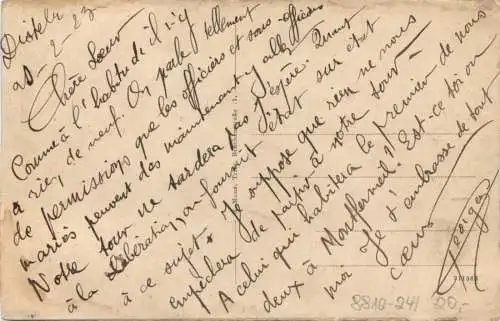 20-2-23
Chère Sœur
Comme à l'habitude il n'y
a rien de neuf. On parle tellement
de permissions que les officiers et sous-officiers
mariés peuvent dès maintenant y aller
Notre tour ne tardera pas j'espère. Quant
à la libération, on fournit l'état
à ce sujet. Je suppose que rien ne nous
empêchera de partir à notre tour
A celui qui habitera le premier de nous
deux à Montfermeil. Est-ce toi ou
moi. Je t'embrasse de tout
cœur
Georges
8810-241 20,-